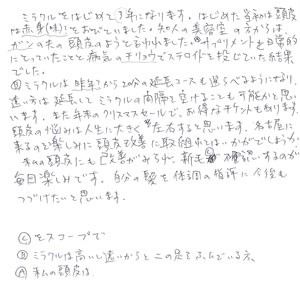 ミラクルをはじめて3年になります。はじめた当初は頭皮
は赤身(味)をおびていました。知人の美容室の方からは
ガンの夫の頭皮のようと言われました。サプリメントを日常的
にとっていたことと病気のチリョウでステロイドを投じていた結果
でした。
ミラクルは昨年から20分の延長コースも選べるようになり、
遠い方は延長してミラクルの間隔を空けることも可能かと思い
ます。また年末のクリスマスセールで、お得なチケットも有ります。
頭皮の悩みは人生に大きく左右すると思います。名古屋に
来るので楽しみに頭皮改善に取組まれてはいかがでしょうか。
夫の頭皮にも改善がみられ、新毛も確認するのが
毎日楽しみです。自分の髪を体調の指標に今後も
つづけたいと思います。
Ⓒをスコープで
Ⓑミラクルは高いし遠いからと二の足をふんでいる方、
Ⓐ私の頭皮は